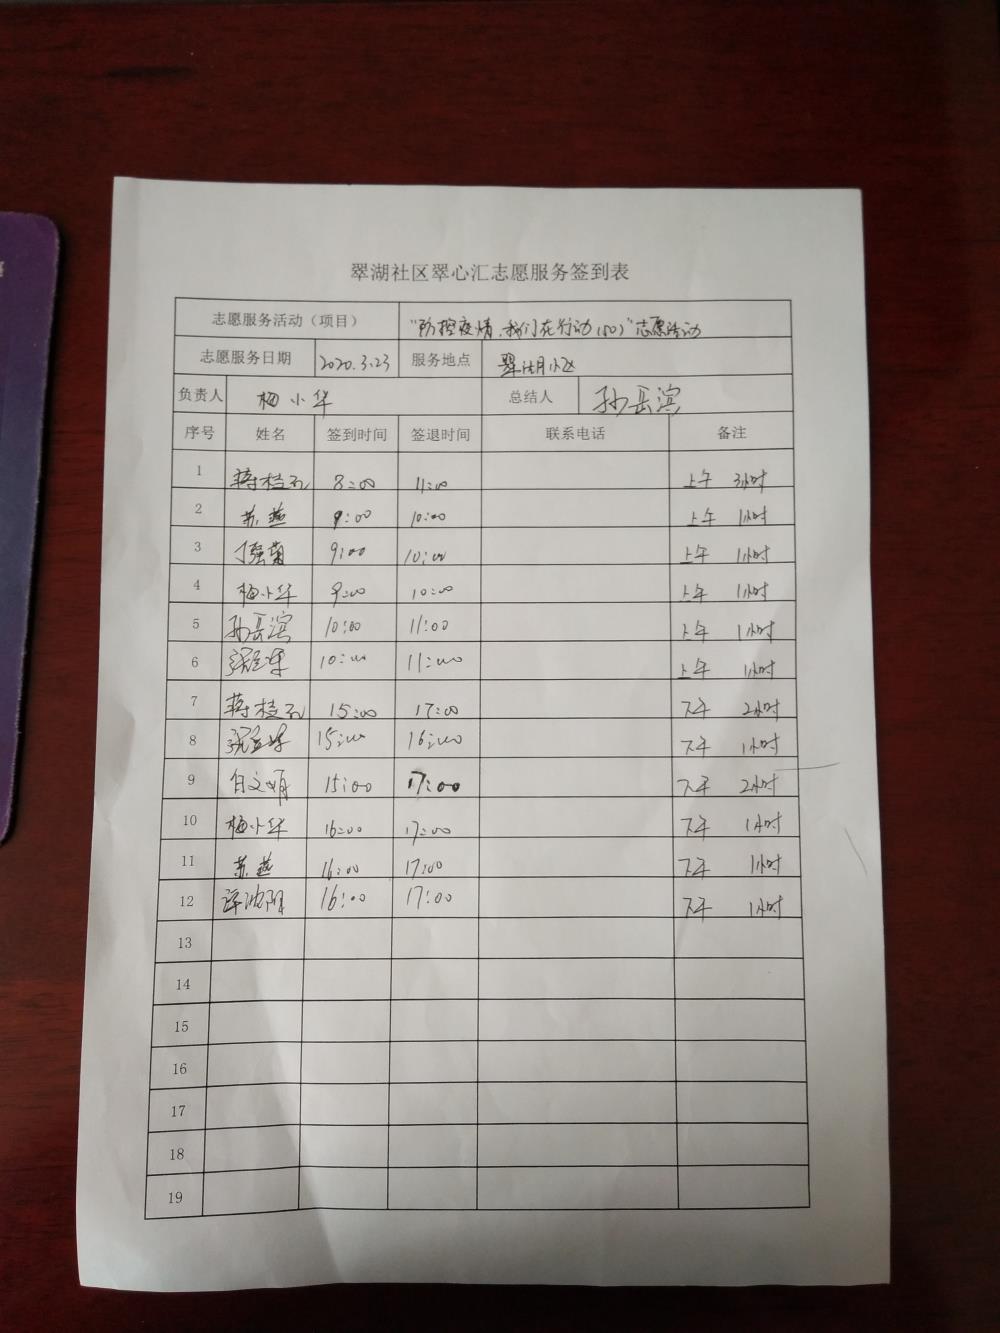 翠湖社区翠心汇志愿服务签到表
志愿服务活动（项目） "防控疫情、我们在行动(50)"志愿活动
志愿服务日期 2020.3.23 服务地点 翠湖小区
负责人 梅小华 总结人 孙岳滨
序号 姓名 签到时间 签退时间 联系电话 备注
1 蒋桂 8:00 11:00 上午 3小时
2 苏燕 9:00 10:00 上午 1小时
3 丁强菊 9:00 10:00 上午 1小时
4 梅小华 9:00 10:00 上午 1小时
5 孙岳滨 10:00 11:00 上午 1小时
6 10:00 11:00 上午 1小时
7 蒋桂 15:00 17:00 下午 2小时
8 15:00 16:00 下午 1小时
9 白文娟 15:00 17:00 下午 2小时
10 梅小华 16:00 17:00 下午 1小时
11 苏燕 16:00 17:00 下午 1小时
12 16:00 17:00 下午 1小时
13
14
15
16
17
18
19